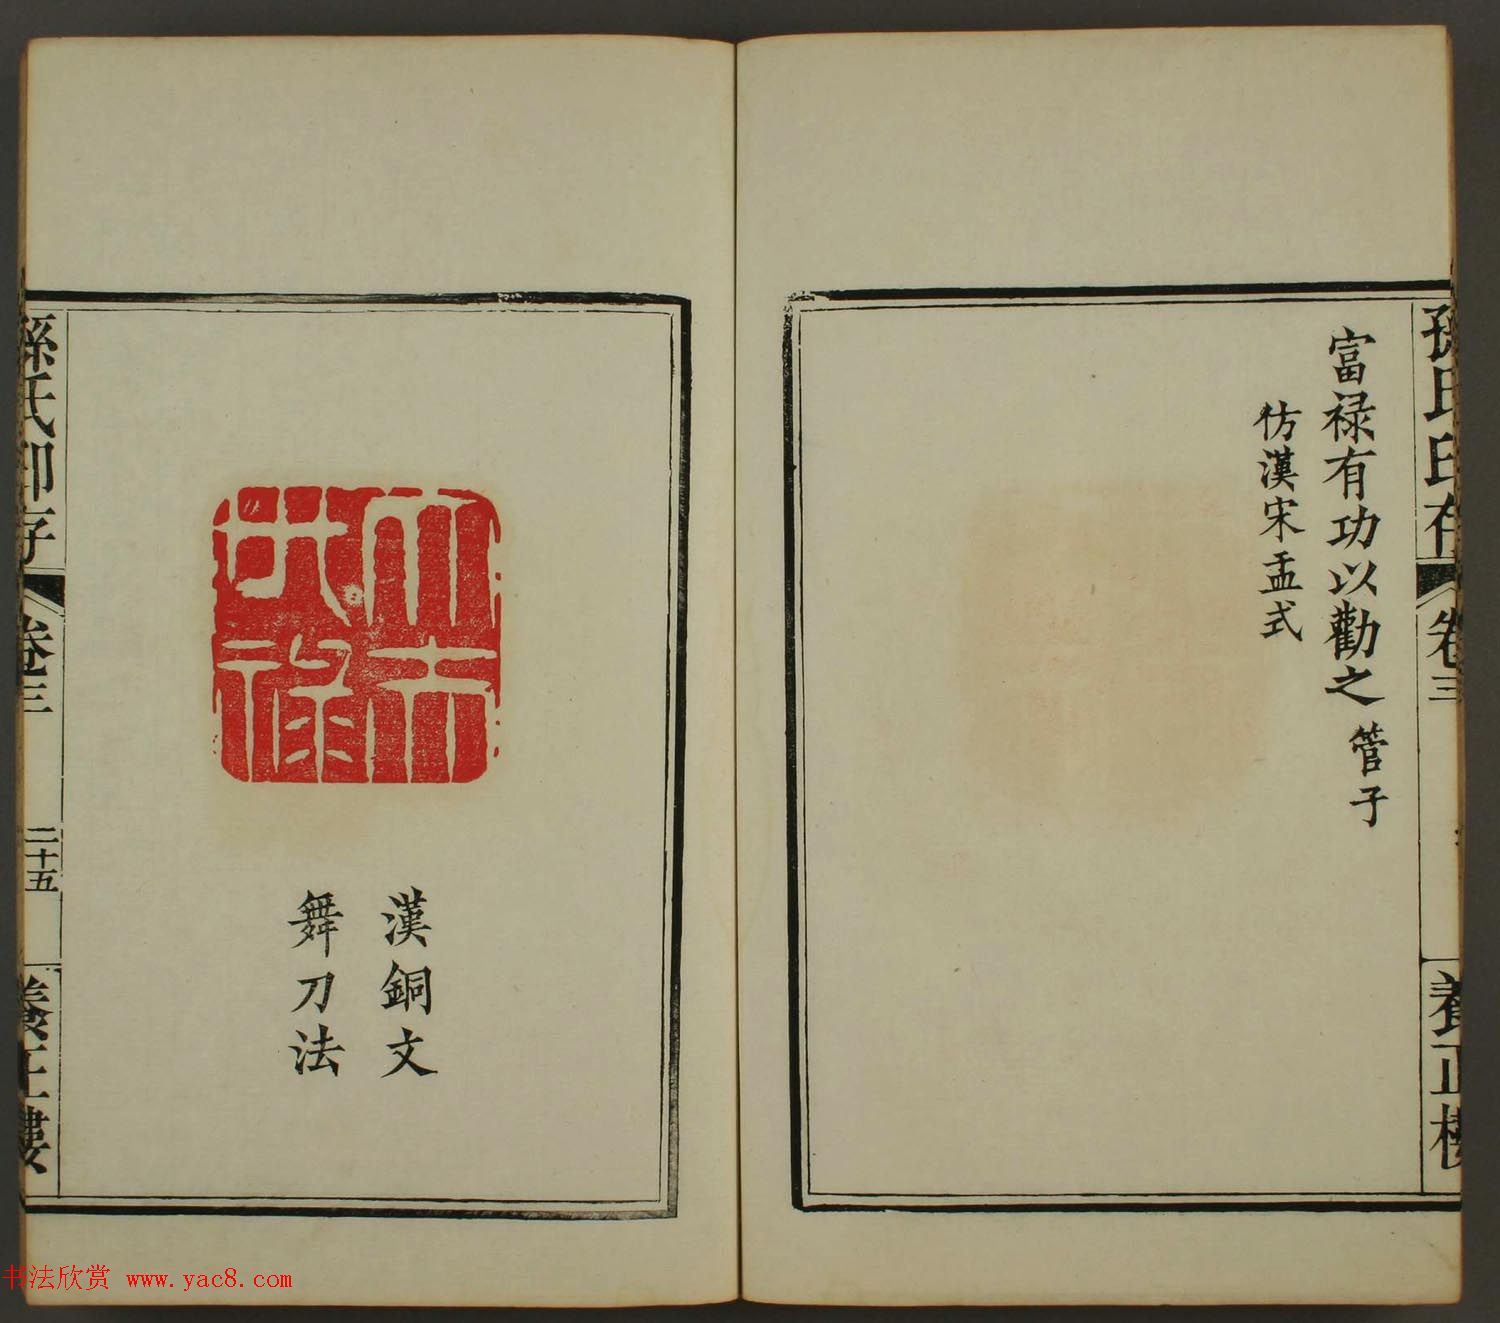 孫氏印存
卷三
養正樓
富祿有功以勸之 管子
仿漢宋盂式
大夫
世祿
漢銅文
舞刀法
孫氏印存
卷三
二十五
養正樓
书法欣赏 www.yac8.com